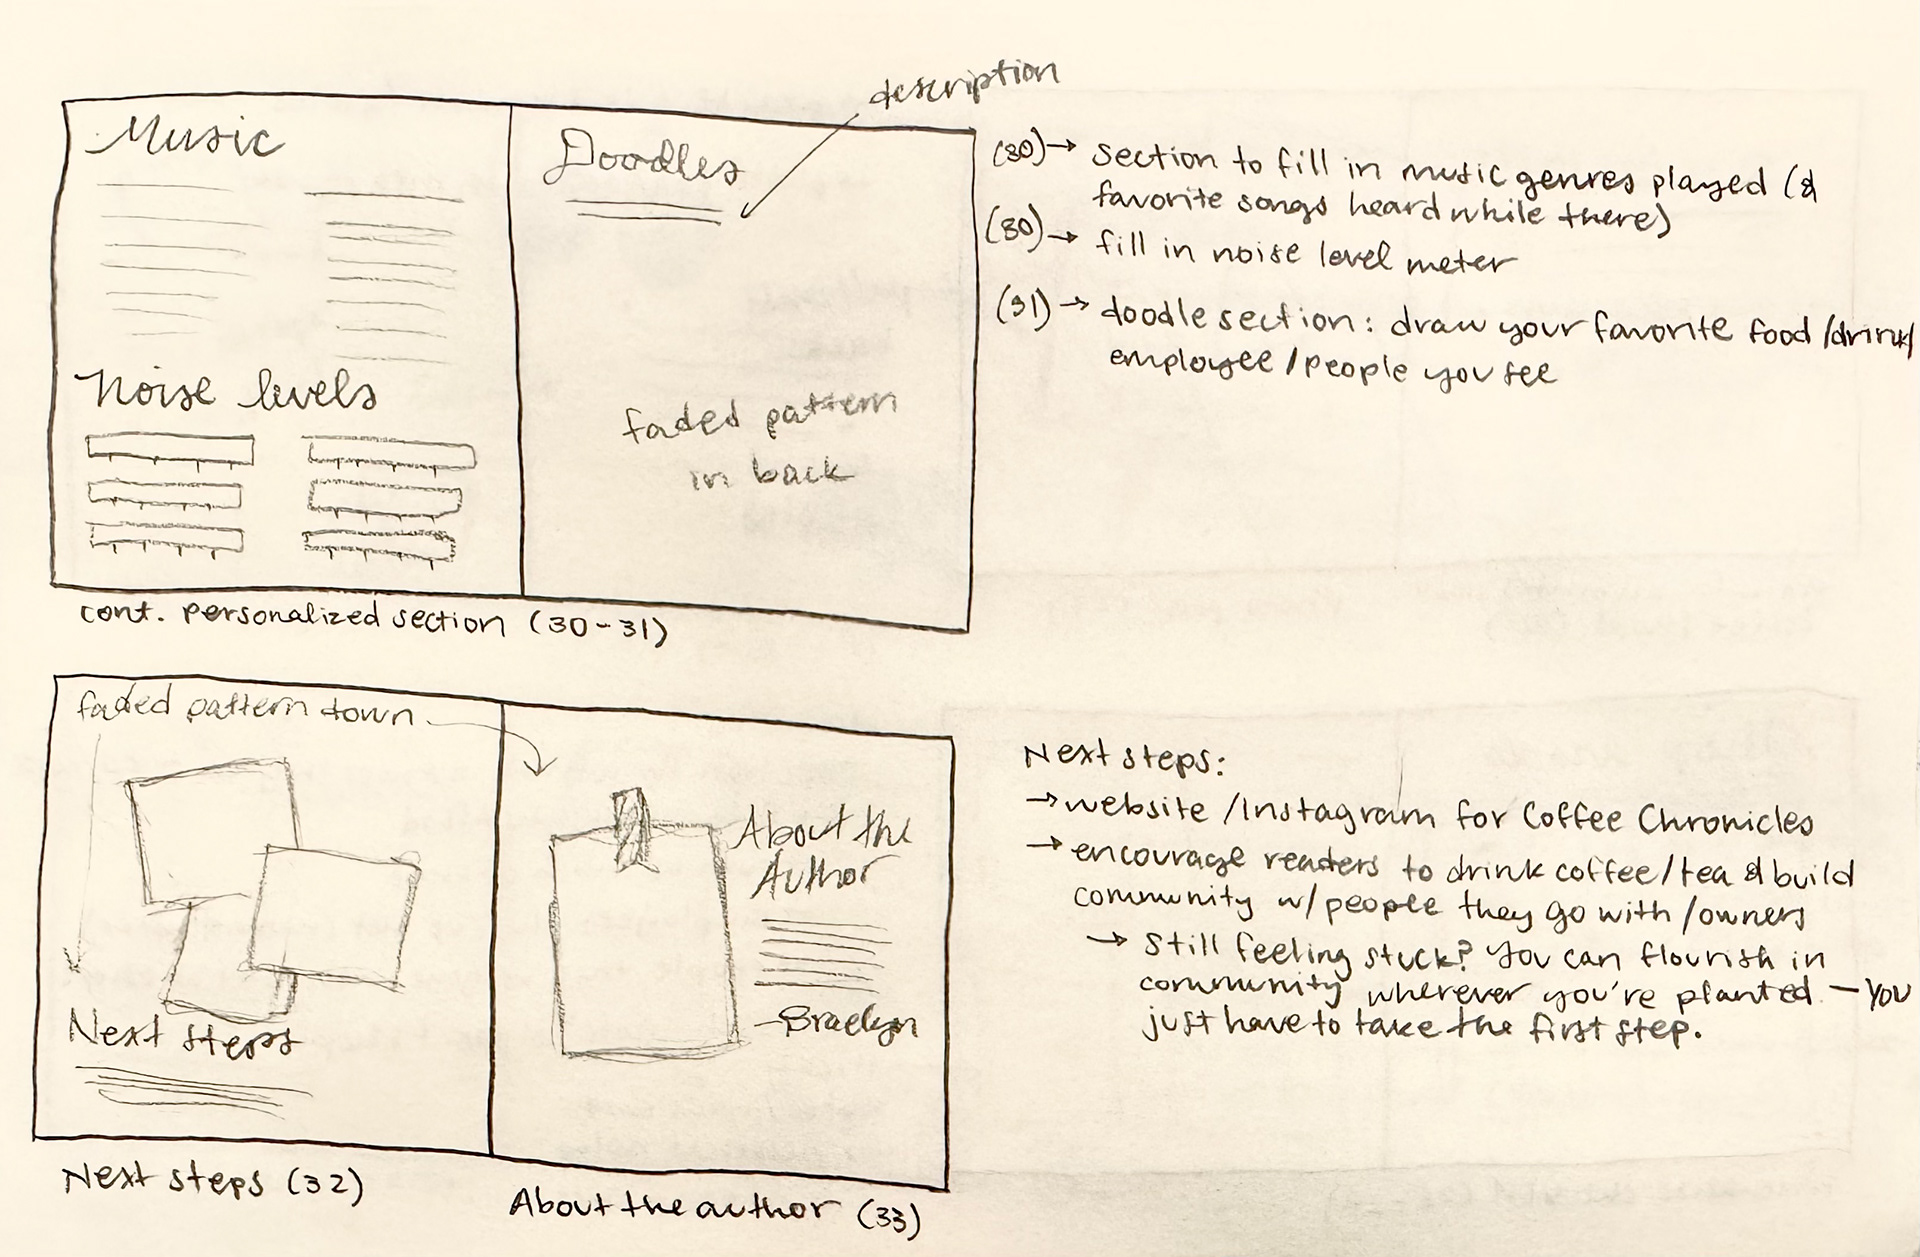 description
Music
Doodles
Noise levels
faded pattern
in back
cont. personalized section (30-31)
(30)→ section to fill in music genres played (&
favorite songs heard while there)
(30)→ fill in noise level meter
(31)→ doodle section: draw your favorite food/drink/
employee/people you see
faded pattern down
Next steps
About the
Author
-Braelyn
Next steps (32)
About the author (33)
Next steps:
→website/Instagram for Coffee Chronicles
→encourage readers to drink coffee/tea & build
community w/people they go with/owners
→ Still feeling stuck? You can flourish in
community wherever you're planted - you
just have to take the first step.